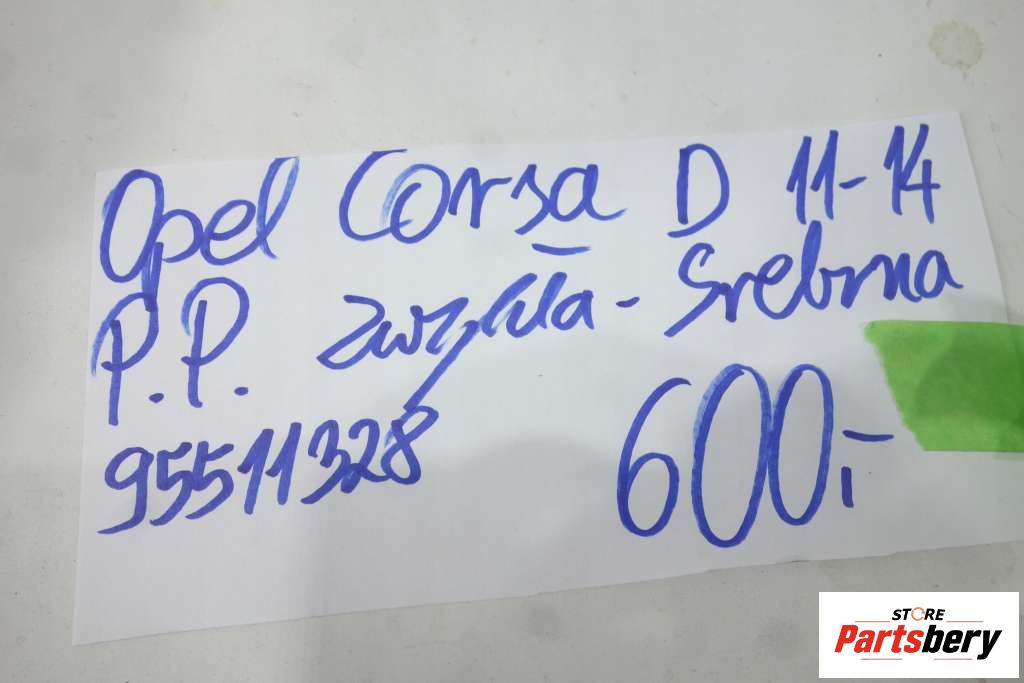 Opel Corsa D 11-14
P.P. zwykła - Srebrna
95511328
600,-
STORE
Partsbery